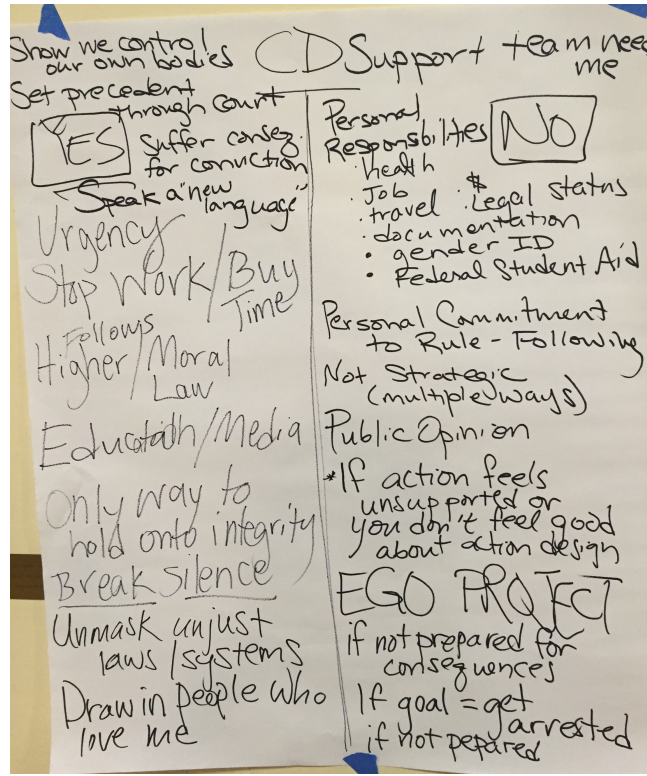 CD
Show we control
our own bodies
Set precedent
through court
YES
Suffer conseq.
for conviction
Speak a "new
language"
Urgency
Stop Work/Buy
Time
Follows
Higher/Moral
Law
Education/Media
Only way to
hold onto integrity
Break Silence
Unmask unjust
laws/systems
Draw in people who
love me
Support team need
me
NO
Personal
Responsbilities
· health
· Job
· travel · $ Legal status
· documentation
• gender ID
• Federal Student Aid
Personal Commitment
to Rule-Following
Not Strategic
(multiple ways)
Public Opinion
*If action feels
unsupported or
you don't feel good
about action design
EGO PROJECT
if not prepared for
consequences
If goal = get
arrested
if not pepared